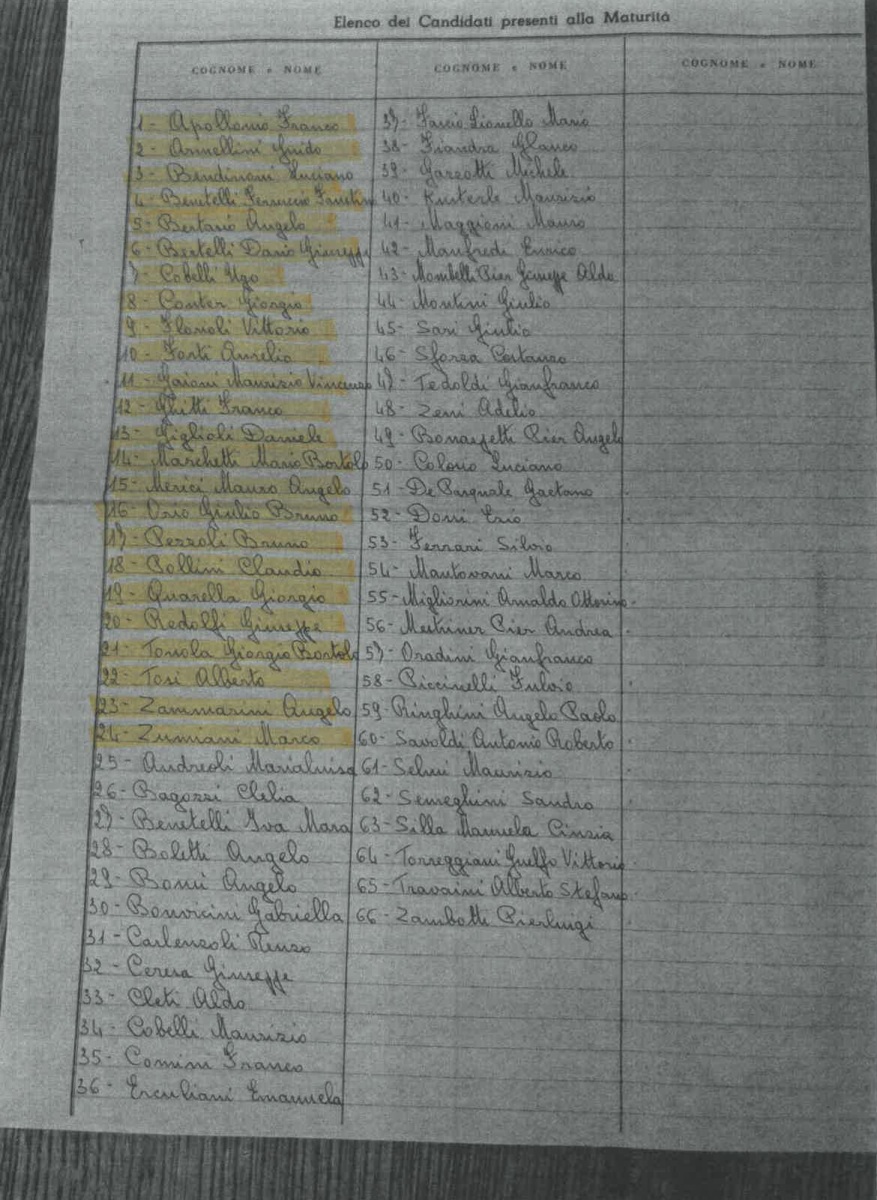 Elenco dei Candidati presenti alla Maturità
COGNOME e NOME
1- Apollonio Franco
2- Armellini Guido
3- Bendinoni Luciano
4- Benetelli Ferruccio Faustino
5- Bertasio Angelo
6- Bertelli Dario Giuseppe
7- Cobelli Ugo
8- Conter Giorgio
9- Florioli Vittorio
10- Forti Aurelio
11- Gaioni Maurizio Vincenzo
12- Ghitti Franco
13- Giglioli Daniele
14- Marchetti Mario Bortolo
15- Merici Mauro Angelo
16- Orio Giulio Bruno
17- Pezzoli Bruno
18- Pollini Claudio
19- Quarella Giorgio
20- Redolfi Giuseppe
21- Tonola Giorgio Bortolo
22- Tosi Alberto
23- Zammarini Angelo
24- Zumiani Marco
25- Andreoli Marialuisa
26- Bagozzi Clelia
27- Benetelli Iva Mara
28- Boletti Angelo
29- Bonui Angelo
30- Bonvicini Gabriella
31- Carlenzoli Renzo
32- Ceresa Giuseppe
33- Cleti Aldo
34- Cobelli Maurizio
35- Comini Franco
36- Erculiani Emanuela
COGNOME e NOME
37- Fascio Lionello Mario
38- Fiandra Glauco
39- Garzotti Michele
40- Kusterle Maurizio
41- Maggioni Mauro
42- Manfredi Enrico
43- Mombelli Pier Giuseppe Aldo
44- Montini Giulio
45- Sari Giulio
46- Sforza Costanzo
47- Tedoldi Gianfranco
48- Zeni Adelio
49- Bonaspetti Pier Angelo
50- Colosio Luciano
51- De Pasquale Gaetano
52- Doni Erio
53- Ferrari Silvio
54- Mantovani Marco
55- Migliorini Arnaldo Ottorino
56- Mestriner Pier Andrea
57- Oradini Gianfranco
58- Piccinelli Fulvio
59- Ringhini Angelo Paolo
60- Savoldi Antonio Roberto
61- Selmi Maurizio
62- Semeghini Sandro
63- Silla Manuela Cinzia
64- Torreggiani Guelfo Vittorio
65- Travaini Alberto Stefano
66- Zambotti Pierluigi
COGNOME e NOME